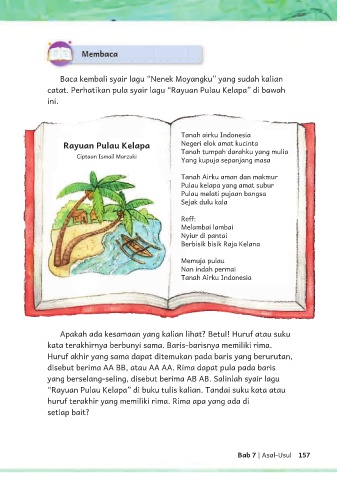 Membaca
Baca kembali syair lagu “Nenek Moyangku” yang sudah kalian
catat. Perhatikan pula syair lagu “Rayuan Pulau Kelapa” di bawah
ini.
Rayuan Pulau Kelapa
Ciptaan Ismail Marzuki
Tanah airku Indonesia
Negeri elok amat kucinta
Tanah tumpah darahku yang mulia
Yang kupuja sepanjang masa
Tanah Airku aman dan makmur
Pulau kelapa yang amat subur
Pulau melati pujaan bangsa
Sejak dulu kala
Reff:
Melambai lambai
Nyiur di pantai
Berbisik bisik Raja Kelana
Memuja pulau
Nan indah permai
Tanah Airku Indonesia
Apakah ada kesamaan yang kalian lihat? Betul! Huruf atau suku
kata terakhirnya berbunyi sama. Baris-barisnya memiliki rima.
Huruf akhir yang sama dapat ditemukan pada baris yang berurutan,
disebut berima AA BB, atau AA AA. Rima dapat pula pada baris
yang berselang-seling, disebut berima AB AB. Salinlah syair lagu
“Rayuan Pulau Kelapa” di buku tulis kalian. Tandai suku kata atau
huruf terakhir yang memiliki rima. Rima apa yang ada di
setiap bait?
Bab 7 | Asal-Usul 157